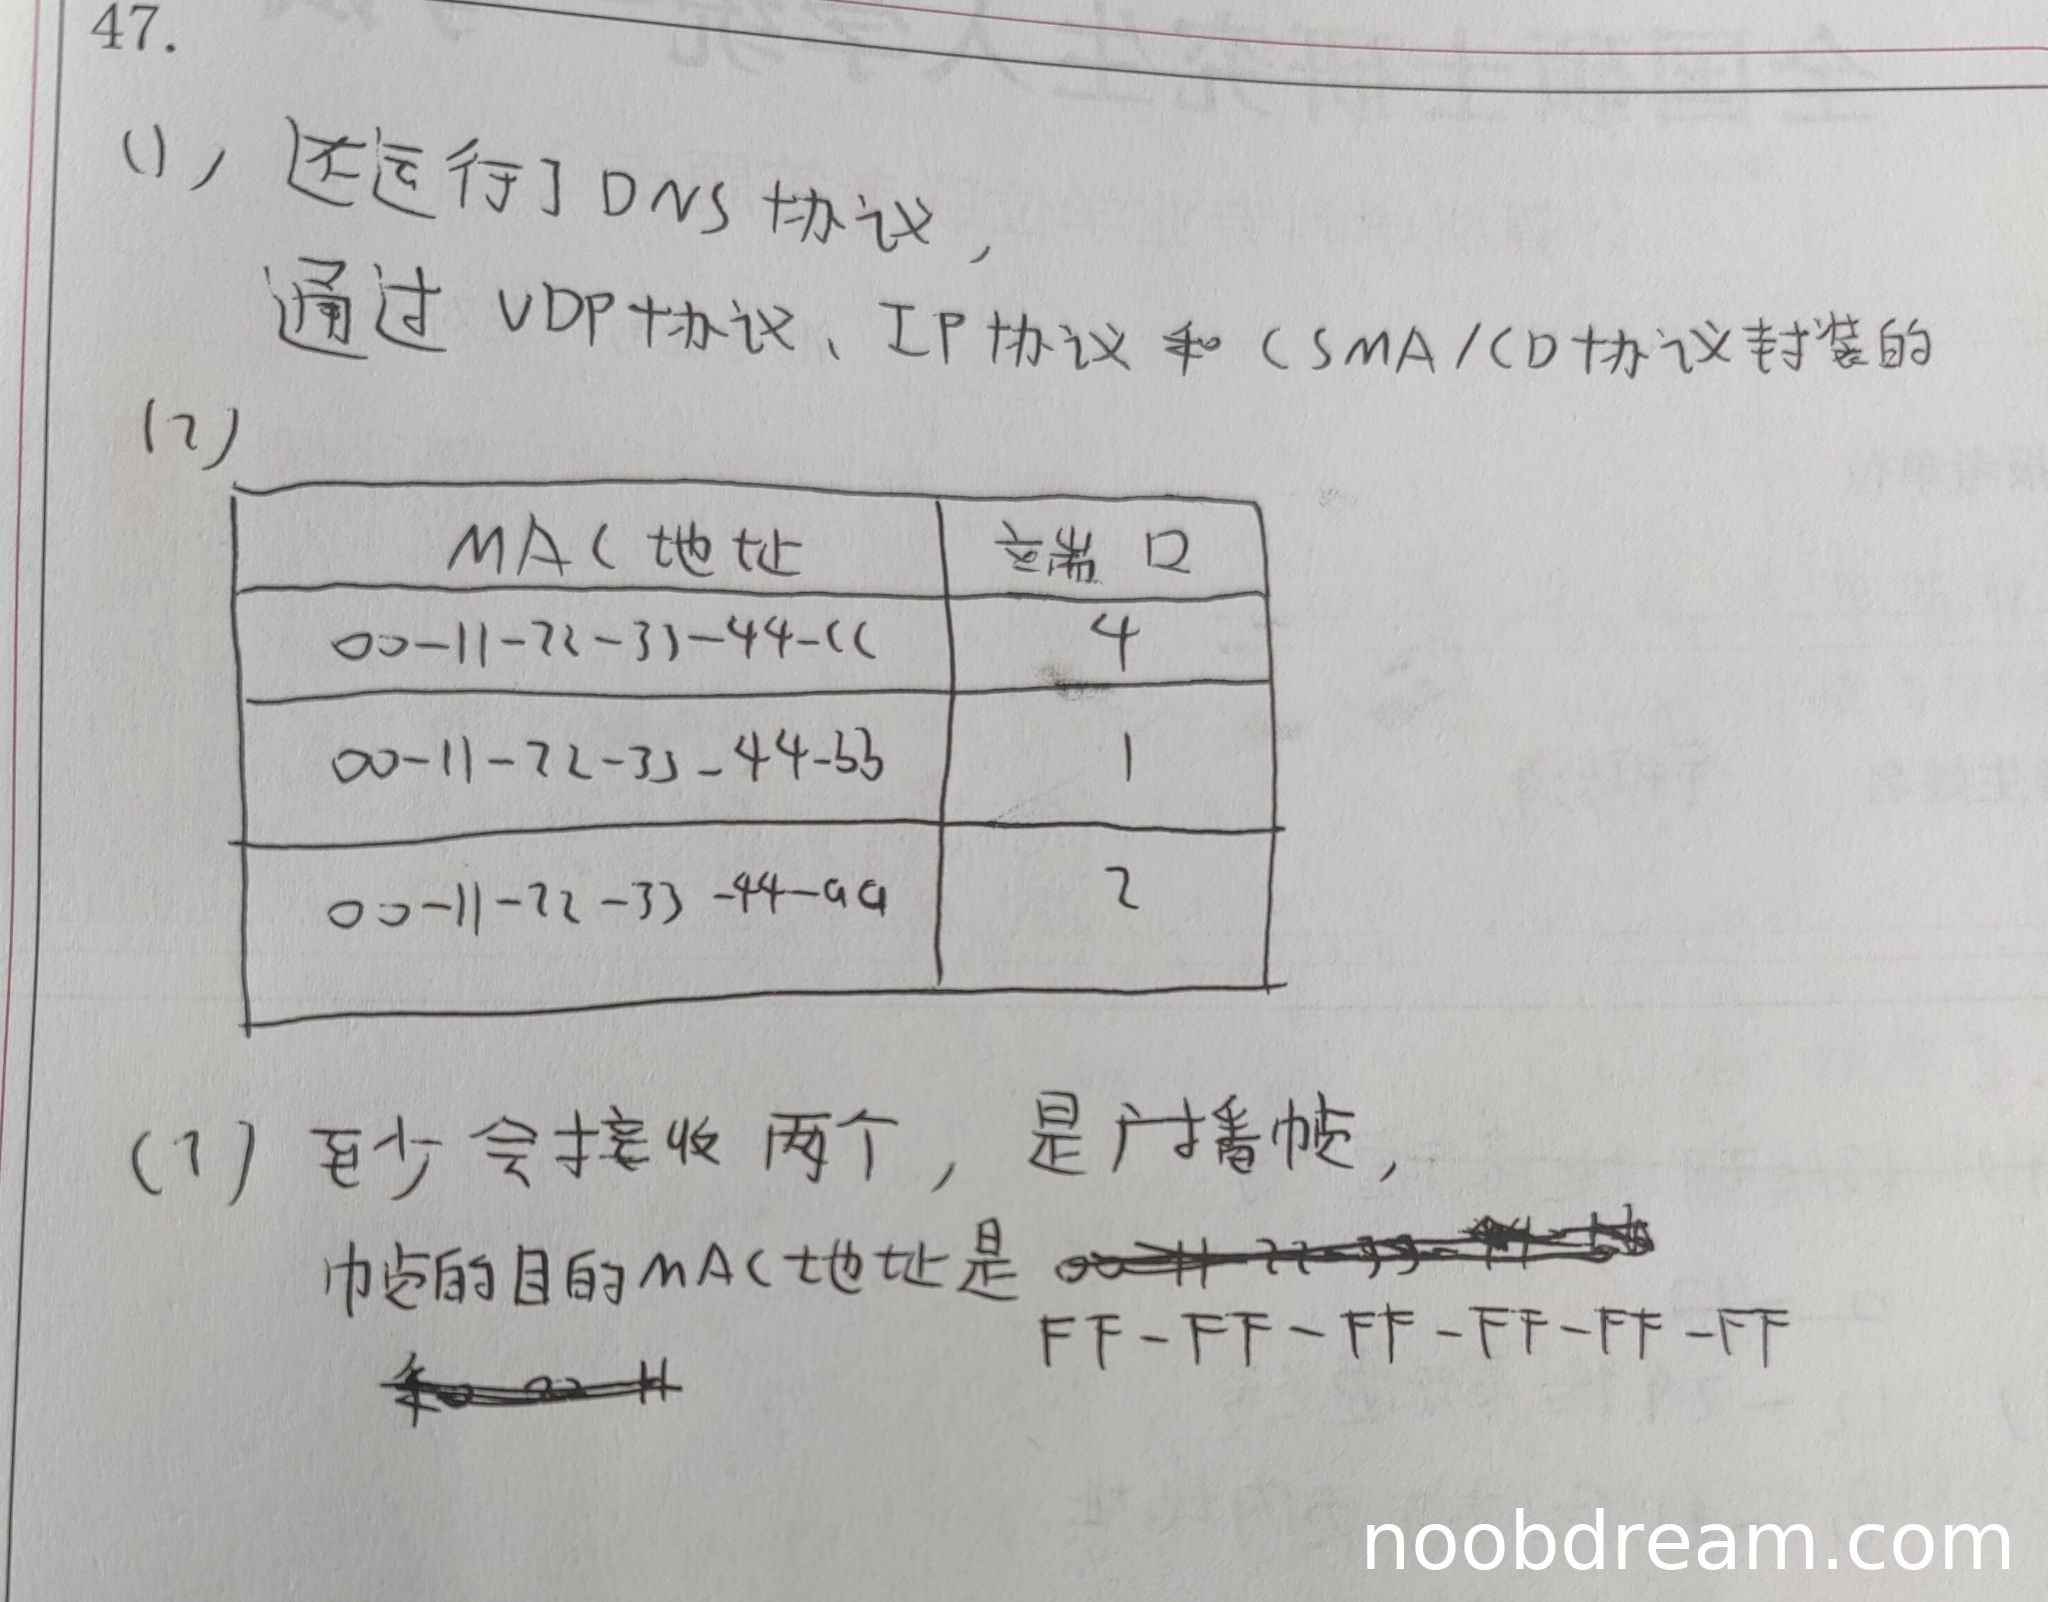 47.
(1), 还运行了DNS协议,
通过 UDP协议、IP协议 和 CSMA/CD协议封装的
(2)
MAC地址 端口
00-11-22-33-44-CC 4
00-11-22-33-44-bb 1
00-11-22-33-44-aa 2
(3) 至少会接收 两个, 是广播帧,
帧的目的MAC地址是
FF-FF-FF-FF-FF-FF
noobdream.com